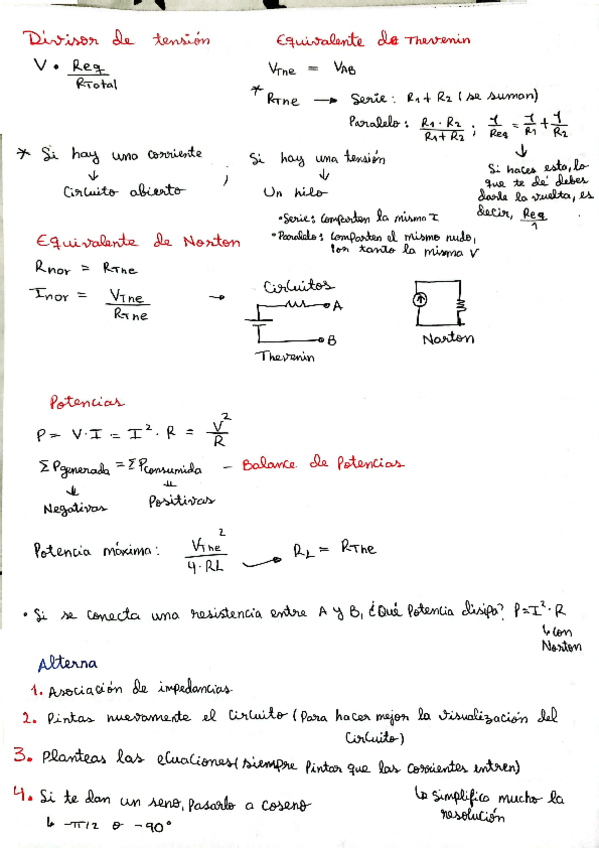 Divisor de tensión
V · Req / RTotal
Equivalente de Thevenin
VThe = VAB
* RThe → Serie: R1 + R2 (se suman)
Paralelo: R1 · R2 / R1 + R2 ; 1/Req = 1/R1 + 1/R2
↓
Si haces esto, lo
que te dé debes
darle la vuelta, es
decir, Req/1
* Si hay una corriente
↓
Circuito abierto
;
Si hay una tensión
↓
Un hilo
• Serie: Comparten la misma I
• Paralelo: Comparten el mismo nudo,
por tanto la misma V
Equivalente de Norton
Rnor = RThe
Inor = VThe / RThe →
Circuitos
A
B
Thevenin
Norton
Potencias
P = V·I = I² · R = V²/R
ΣPgenerada = ΣPconsumida – Balance de Potencias
↓ ↓
Negativas Positivas
Potencia máxima: VThe² / 4·RL → RL = RThe
• Si se conecta una resistencia entre A y B, ¿Qué Potencia disipa? P=I²·R
↳ con
Norton
Alterna
1. Asociación de impedancias
2. Pintas nuevamente el circuito (Para hacer mejor la visualización del
circuito)
3. Planteas las ecuaciones (siempre Pintar que las corrientes entren)
↳ simplifica mucho la
resolución
4. Si te dan un seno, pasarlo a coseno
↳ -π/2 o -90°